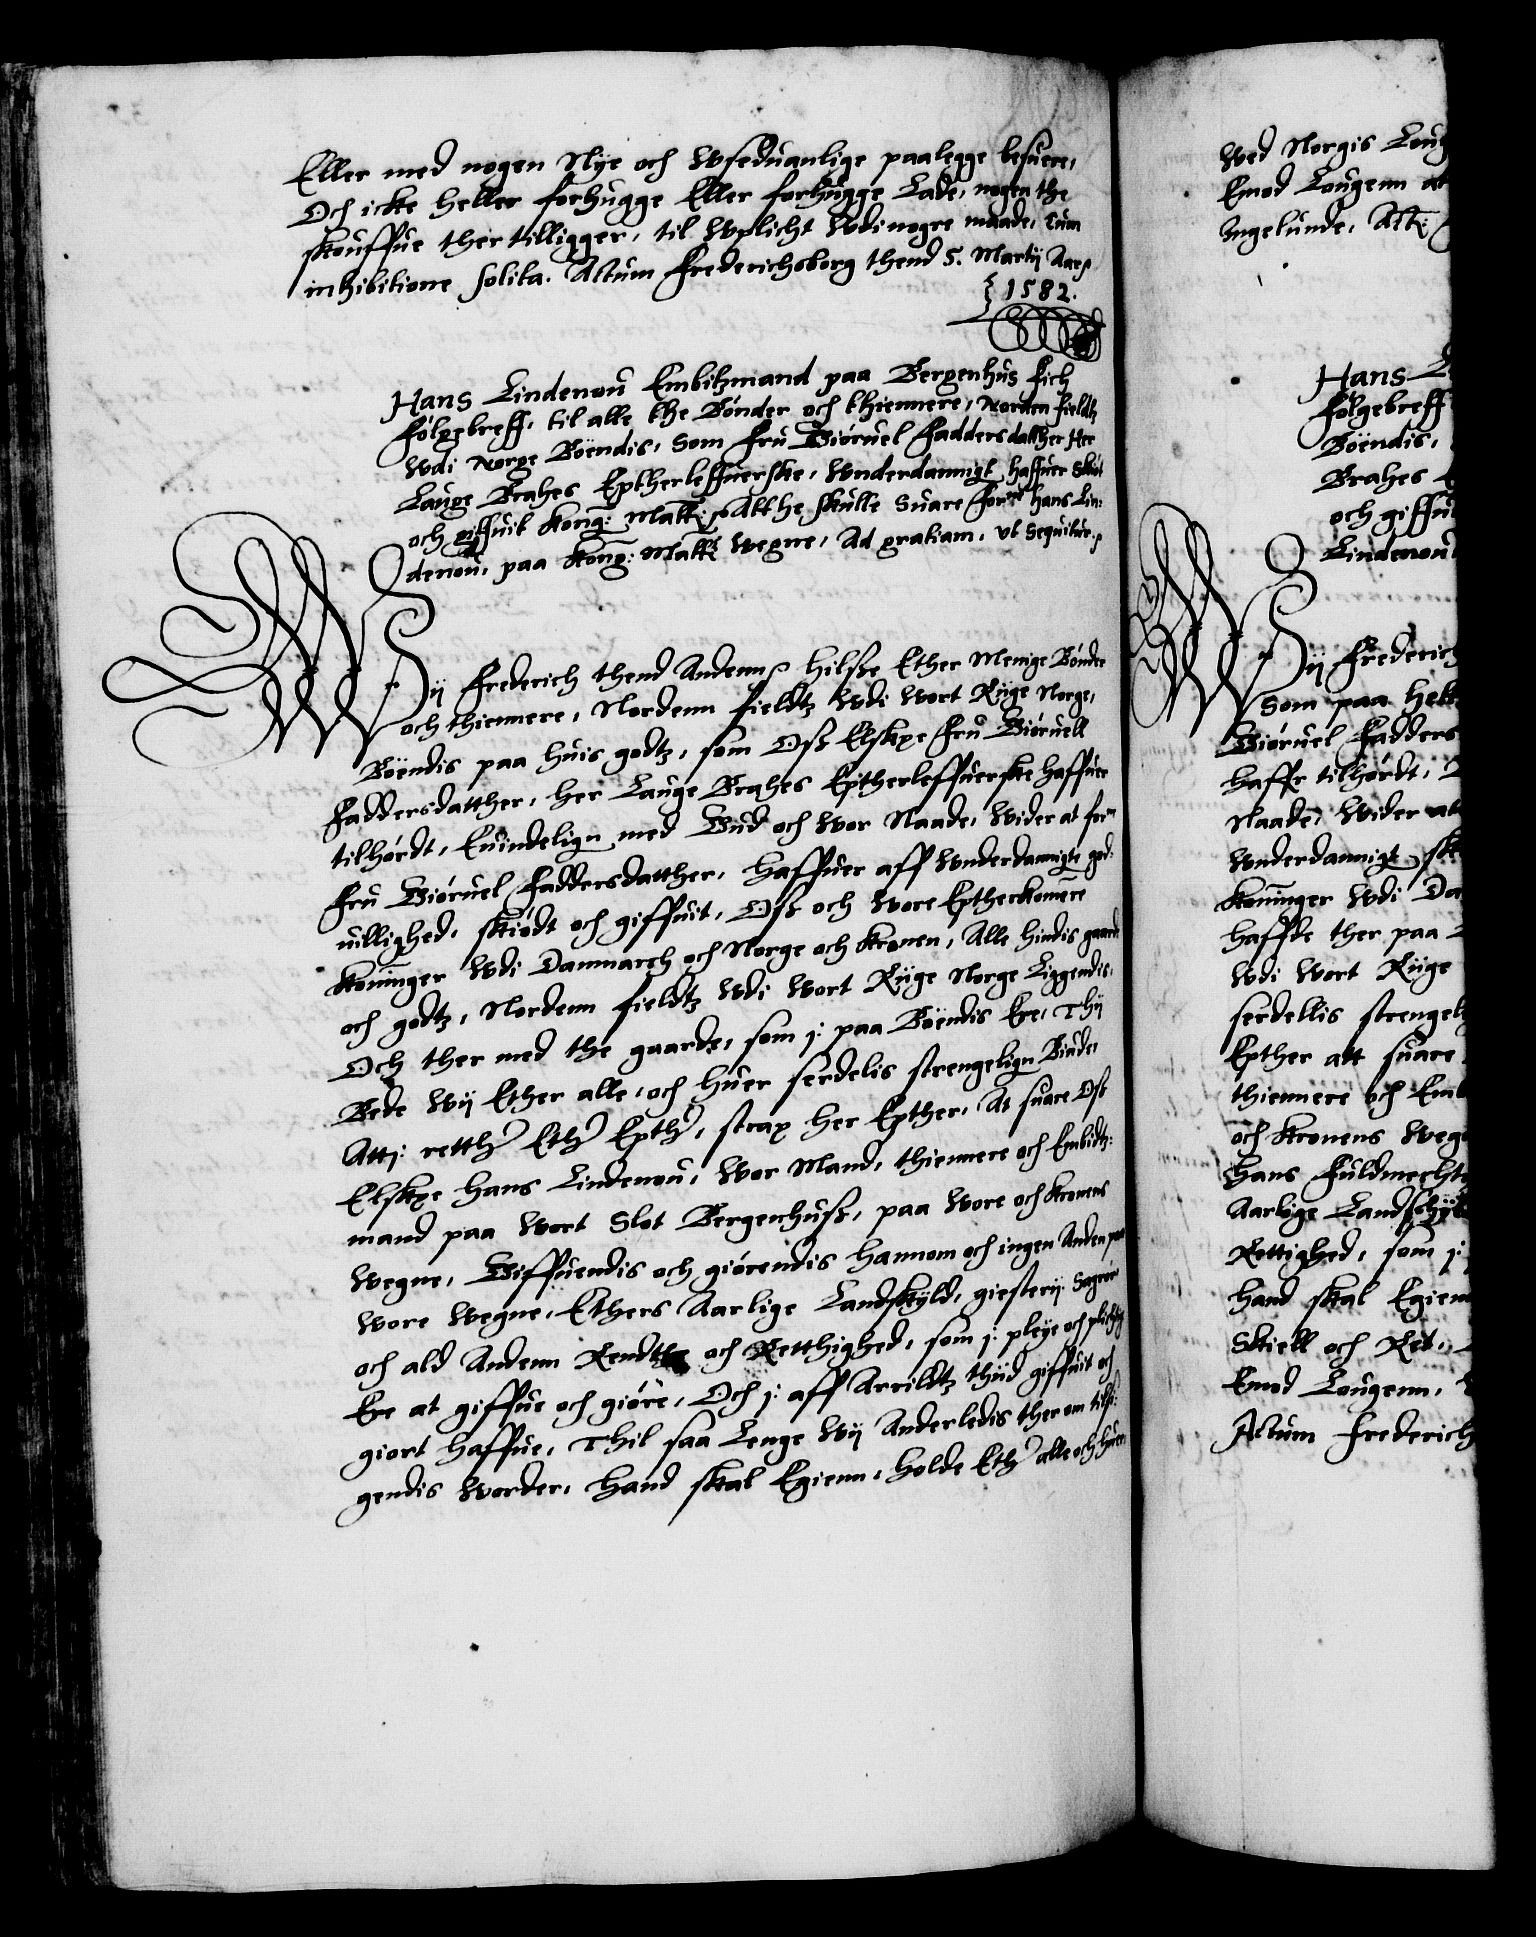 Eller med nogen Nÿe och Wseduanlige paalegge besuere,
Och icke heller forhugge Eller forhugge Lade, nogen the
skouffue ther tilligger, til Wplicht Wdi nogre maade, Cum
inhibitione solita. Actum Frederichsborg thend 5. Martij Aar
1582.
Hans Lindenou Embitzmand paa Bergenhus fich
følgebreff, til alle the Bønder och thiennere, Norden fieldtz
Wdi Norge Boendis, Som Fru Giøruel Faddersdatther Her
Lauge Brahes Eptherleffuerske, Wnderdannigt haffuer Skiøt
och giffuit Kong: Matt: Att the skulle Suare for:ne Hans Lin:
denou, paa Kong: Matt: Wegne, Ad gratiam, Vt Sequitur.
Wij Frederich thend Andenn, Hilsse Ether Menige Bønder
och thiennere, Nordenn fieldtz Wdi Wort Rige Norge,
Boendis paa huis godtz, som Oss Elskxe Fru Giøruell
Faddersdatther, Her Lauge Brahes Eptherleffuerske haffuer
tilhørdt, Euindelign med Gud och Wor Naade, Wider at for:ne
Fru Giøruel Faddersdatther, haffuer aff Wnderdannigte god:
uillighed, skiødt och giffuit, Oss och Wore Eptherkomere
Koninger Wdi Danmarch och Norge och Kronen, Alle hindis gaarde
och godtz, Nordenn fieldtz Wdi Wort Rige Norge Liggendis,
Och ther med the gaarde, som j: paa Boendis Ere, Thij
Bede Wij Ether alle, och huer serdelis strengelign Biude,
Att j: retth Eth Epth, strax her Epther, At suare Oss
Elskxe Hans Lindenou, Wor Mand, thiennere och Embidtz:
mand paa Wort Slot Bergenhuss, paa Wore och Kronens
Wegne, Giffuendis och giørendis hannom och ingen Anden paa
Wore Wegne, Ethers Aarlige Landskyld, giesterij Sagører
och ald Andenn Rendthe och Retthighed, som j: pleÿe och plichtig
Ere at giffue och giøre, Och j: aff Arrildtz thÿd giffuit och
giort haffue, Thil saa Lenge Wij Anderledis ther om tilsi:
gendis Worder, Hand skal Egienn, holde Eth alle och huer
Wed Norgis Loug
Emod Lougenn at
Ingelunde, Act:
Hans L
følgebreff
Boendis,
Brahes E
och giffui
Lindenou
Wij Frederich
Som paa Hekt
Giøruel Fadders
haffr tilhørdt,
Naade, Wider at
Wnderdannigt sk
Koninger Wdi Da
haffde ther paa
Wdi Wort Rige
serdellis strengel
Epther att suare
thiennere och Emb
och Kronens Weg
Hans Fuldmechti
Aarlige Landskyl
Rettighed, som j:
hand skal Egien
Skiell och Ret,
Emod Lougenn,
Actum Frederich